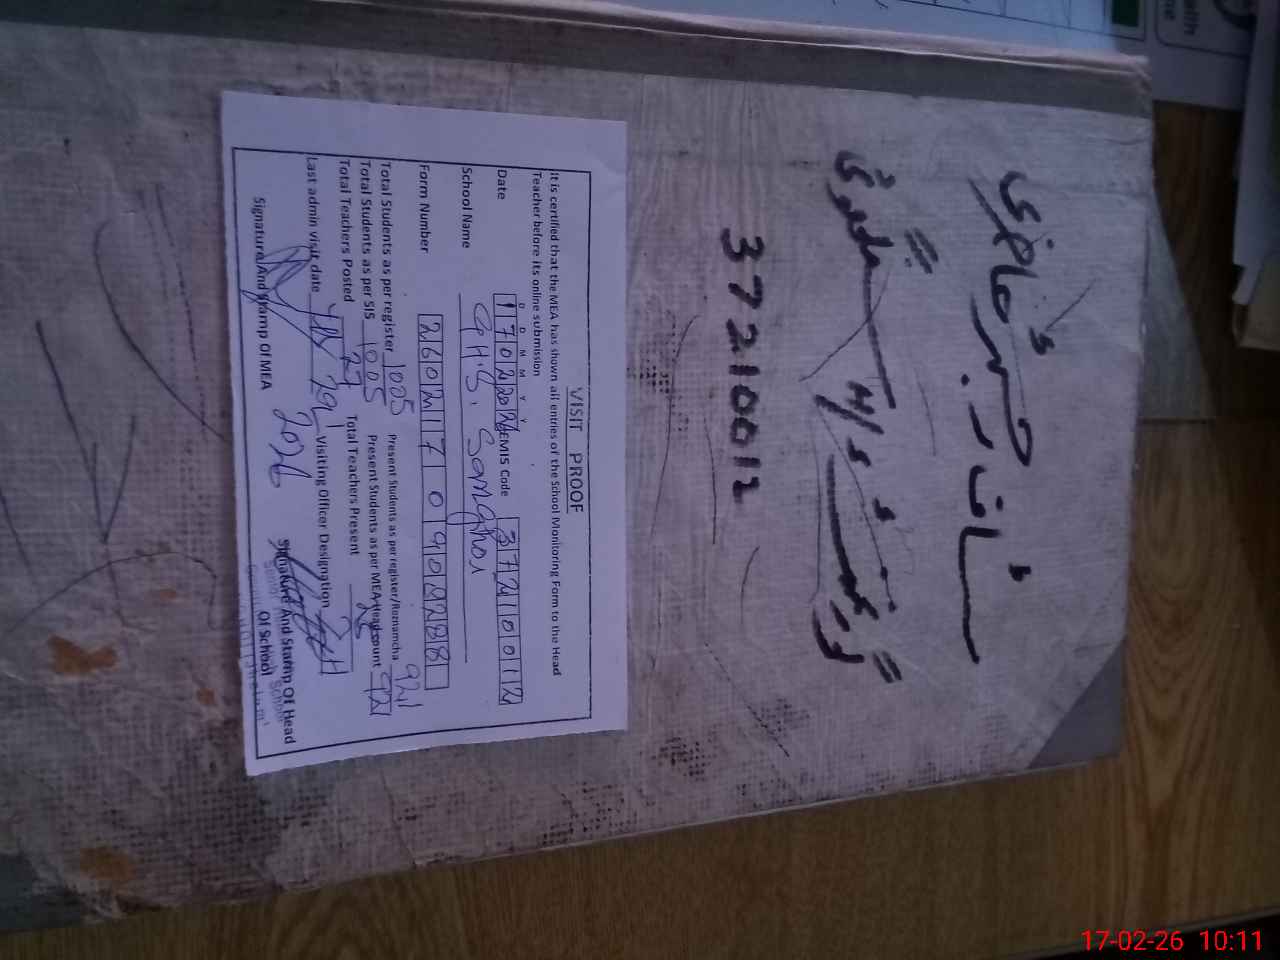 رجسٹر حاضری
سٹاف
گورنمنٹ ہائی سکول
37210012
VISIT PROOF
It is certified that the MEA has shown all entries of the School Monitoring Form to the Head
Teacher before its online submission
D D M M Y Y
Date 170226 EMIS Code 37210012
School Name G.H.S, Sanghoi
Form Number 260217090288
Total Students as per register 1005 Present Students as per register/Roznamcha 921
Total Students as per SIS 1005 Present Students as per MEA Head count
Total Teachers Posted 27 Total Teachers Present 25
Last admin visit date Visiting Officer Designation
2026
Signature And Stamp Of MEA Signature And Stamp Of Head
Of School
17-02-26 10:11